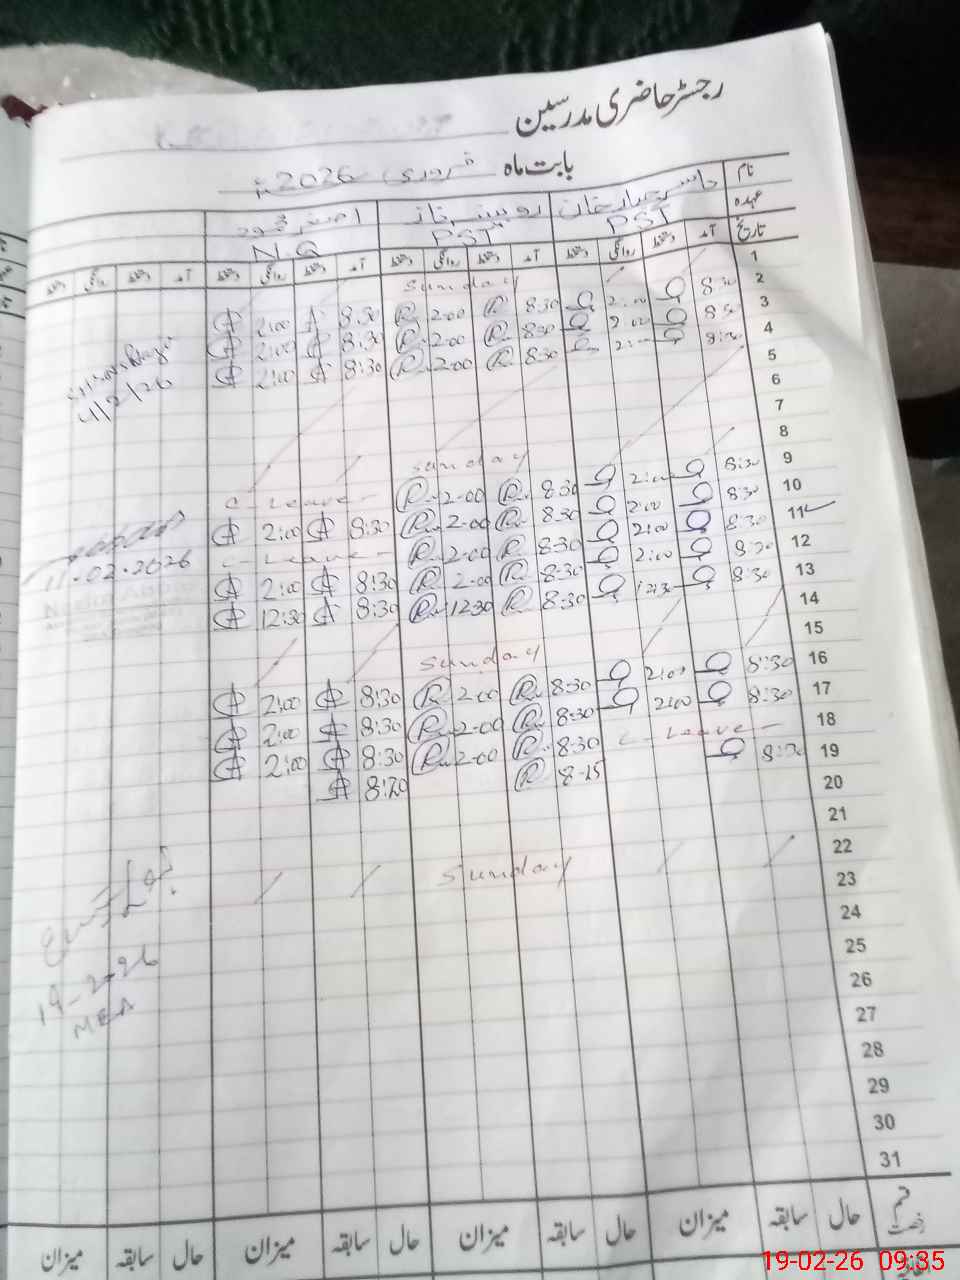 رجسٹر حاضری مدرسین
بابت ماہ فروری 2026ء
نام
عہدہ PST PST N.Q
تاریخ آمد دستخط روانگی دستخط آمد دستخط روانگی دستخط آمد دستخط روانگی دستخط آمد دستخط روانگی دستخط
1 Sunday
2 8:30 2:00 8:30 2-00 8:30 2:00
3 8:30 2:00 8:30 2-00 8:30 2:00
4 8:30 2:00 8:30 2-00 8:30 2:00
4/2/26
5
6
7
8 Sunday
9 8:30 2:00 8:30 2-00 C-Leave-
10 8:30 2:00 8:30 2-00 8:30 2:00
11 8:30 2:00 8:30 2-00 C-Leave-
11-02-2026
12 8:30 2:00 8:30 2-00 8:30 2:00
13 8:30 12:30 8:30 12:30 8:30 12:30
14
15 Sunday
16 8:30 2:00 8:30 2-00 8:30 2:00
17 8:30 2:00 8:30 2-00 8:30 2:00
18 C-Leave- 8:30 2-00 8:30 2:00
19 8:20 8-15 8:20
20
21
22 Sunday
23
24
19-2-26
MEA
25
26
27
28
29
30
31
قسم رخصت حال سابقہ میزان حال سابقہ میزان حال سابقہ میزان حال سابقہ میزان
19-02-26 09:35